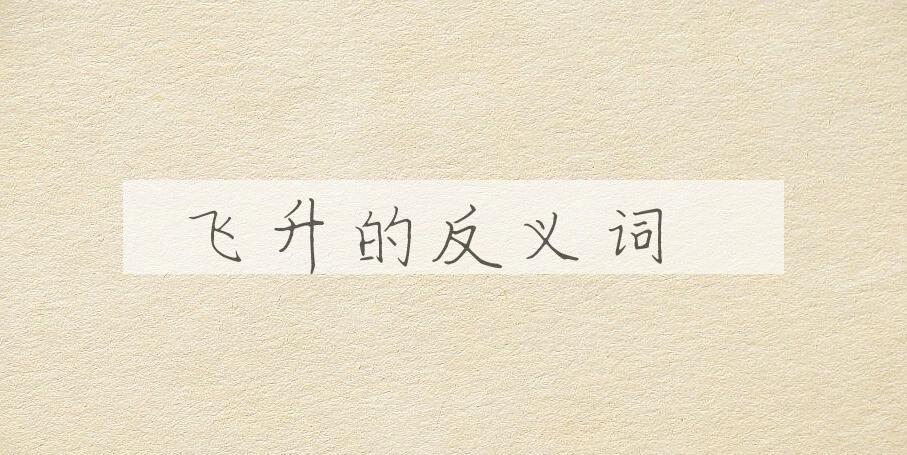 飞升的反义词